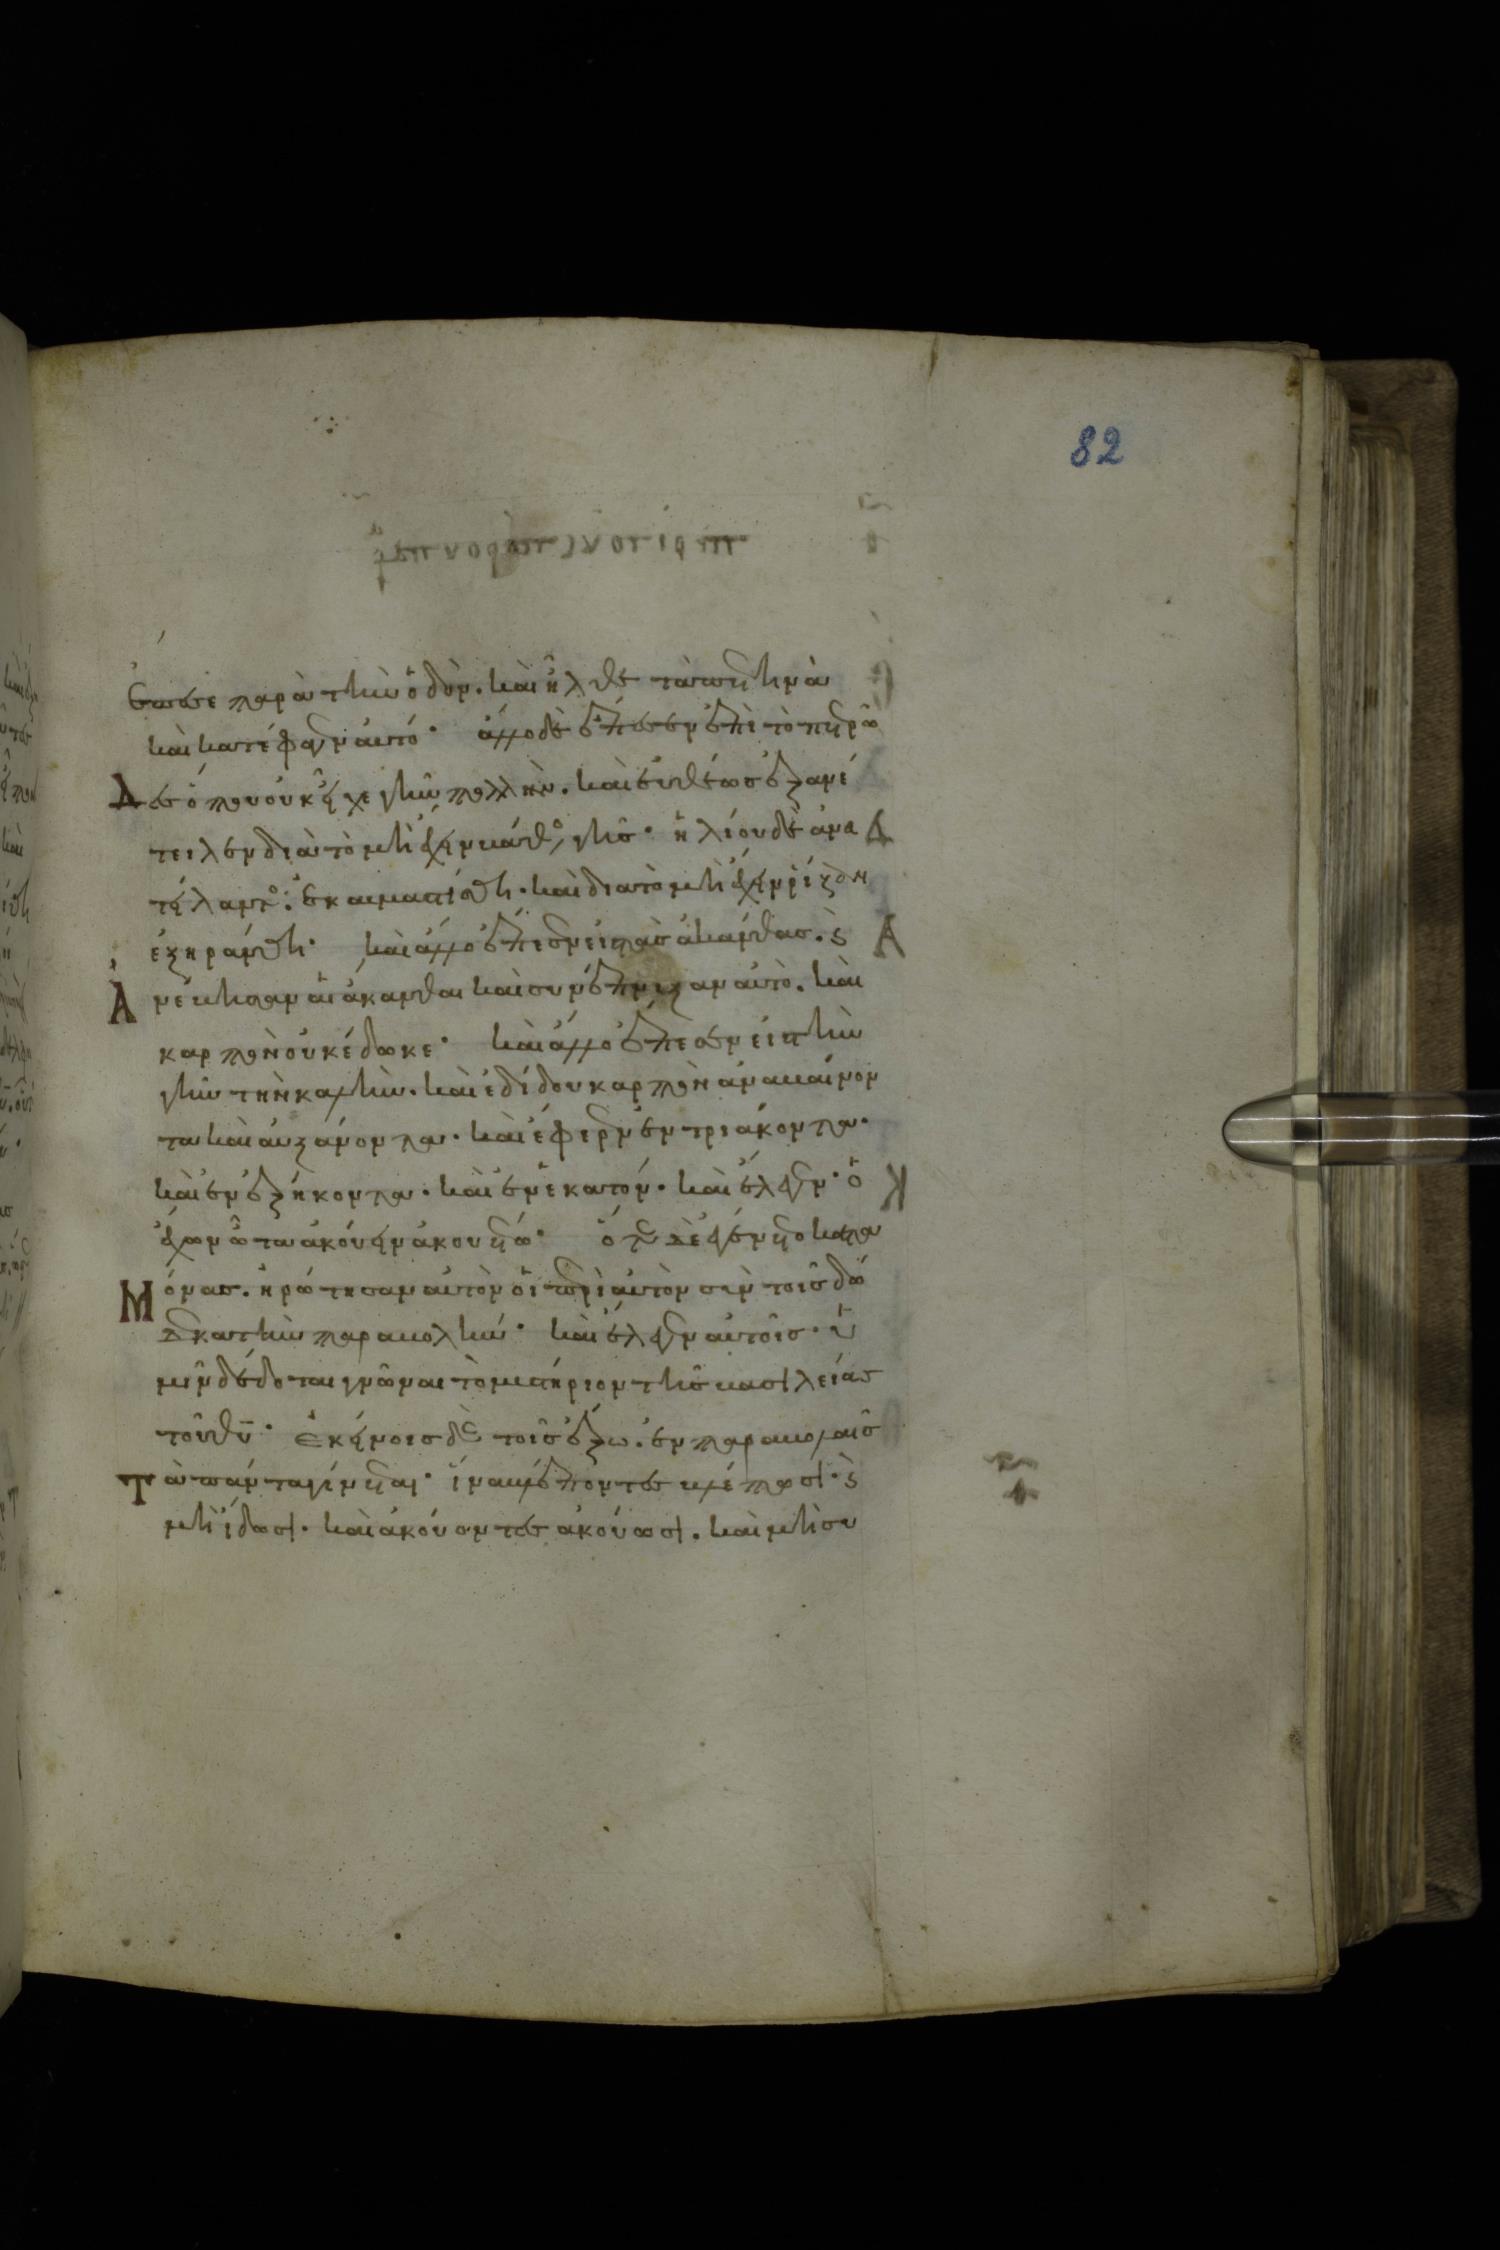 82
ἔπεσε παρὰ τὴν ὁδόν. καὶ ἦλθε τὰ πετεινὰ
καὶ κατέφαγεν αὐτό. ἄλλο δὲ ἔπεσεν ἐπὶ τὸ πετρῶ
δες ὅπου οὐκ εἶχε γῆν πολλήν. καὶ εὐθέως ἐξανέ
τειλεν διὰ τὸ μὴ ἔχειν βάθος γῆς. ἡλίου δὲ ἀνα
τείλαντος ἐκαυματίσθη. καὶ διὰ τὸ μὴ ἔχειν ῥίζαν
ἐξηράνθη. καὶ ἄλλο ἔπεσεν εἰς τὰς ἀκάνθας. ϗ
ἀνέβησαν αἱ ἄκανθαι καὶ συνέπνιξαν αὐτὸ. καὶ
καρπὸν οὐκ έδωκε. καὶ ἄλλο ἔπεσεν εἰς τὴν
γῆν τὴν καλὴν. καὶ ἐδίδου καρπὸν ἀναβαίνον
τα καὶ αὐξάνοντα. καὶ ἔφερεν ἐν τριάκοντα.
καὶ ἐν ἑξήκοντα. καὶ ἐν ἑκατόν. καὶ ἔλεγεν. ὁ
ἔχων ὦτα ἀκούειν ἀκουέτω. ὅτε δὲ ἐγένετο κατα
μόνας. ἠρώτησαν αὐτὸν οἱ περὶ αὐτὸν σὺν τοῖς δώ
δεκα τὴν παραβολήν. καὶ ἔλεγεν αὐτοῖς. ὑ
μῖν δέδοται γνῶναι τὸ μυστήριον τῆς βασιλείας
τοῦ θυ. ἐκείνοις δὲ τοῖς ἔξω. ἐν παραβολαῖς
τὰ πάντα γίνεται. ἵνα βλέποντες βλέπωσι. ϗ
μὴ ἴδωσι. καὶ ἀκούοντες ἀκούωσι. καὶ μὴ συ